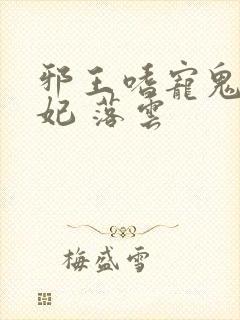 邪王嗜寵鬼
妃 落雲
梅盛雪